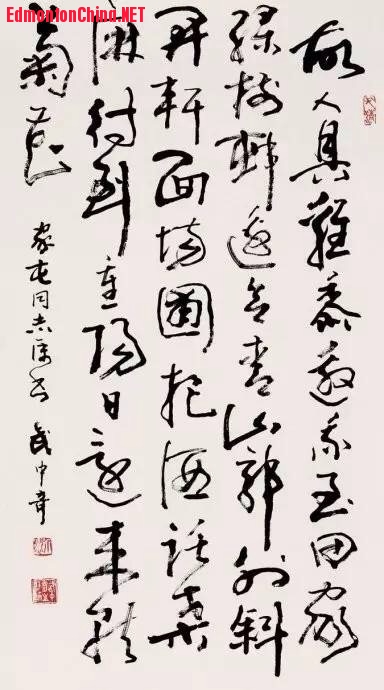 EdmontonChina.NET
故人具雞黍邀我至田家
綠樹村邊合青山郭外斜
開軒面場圃把酒話桑
麻待到重陽日還來就
菊花
家屯同志屬 武中奇